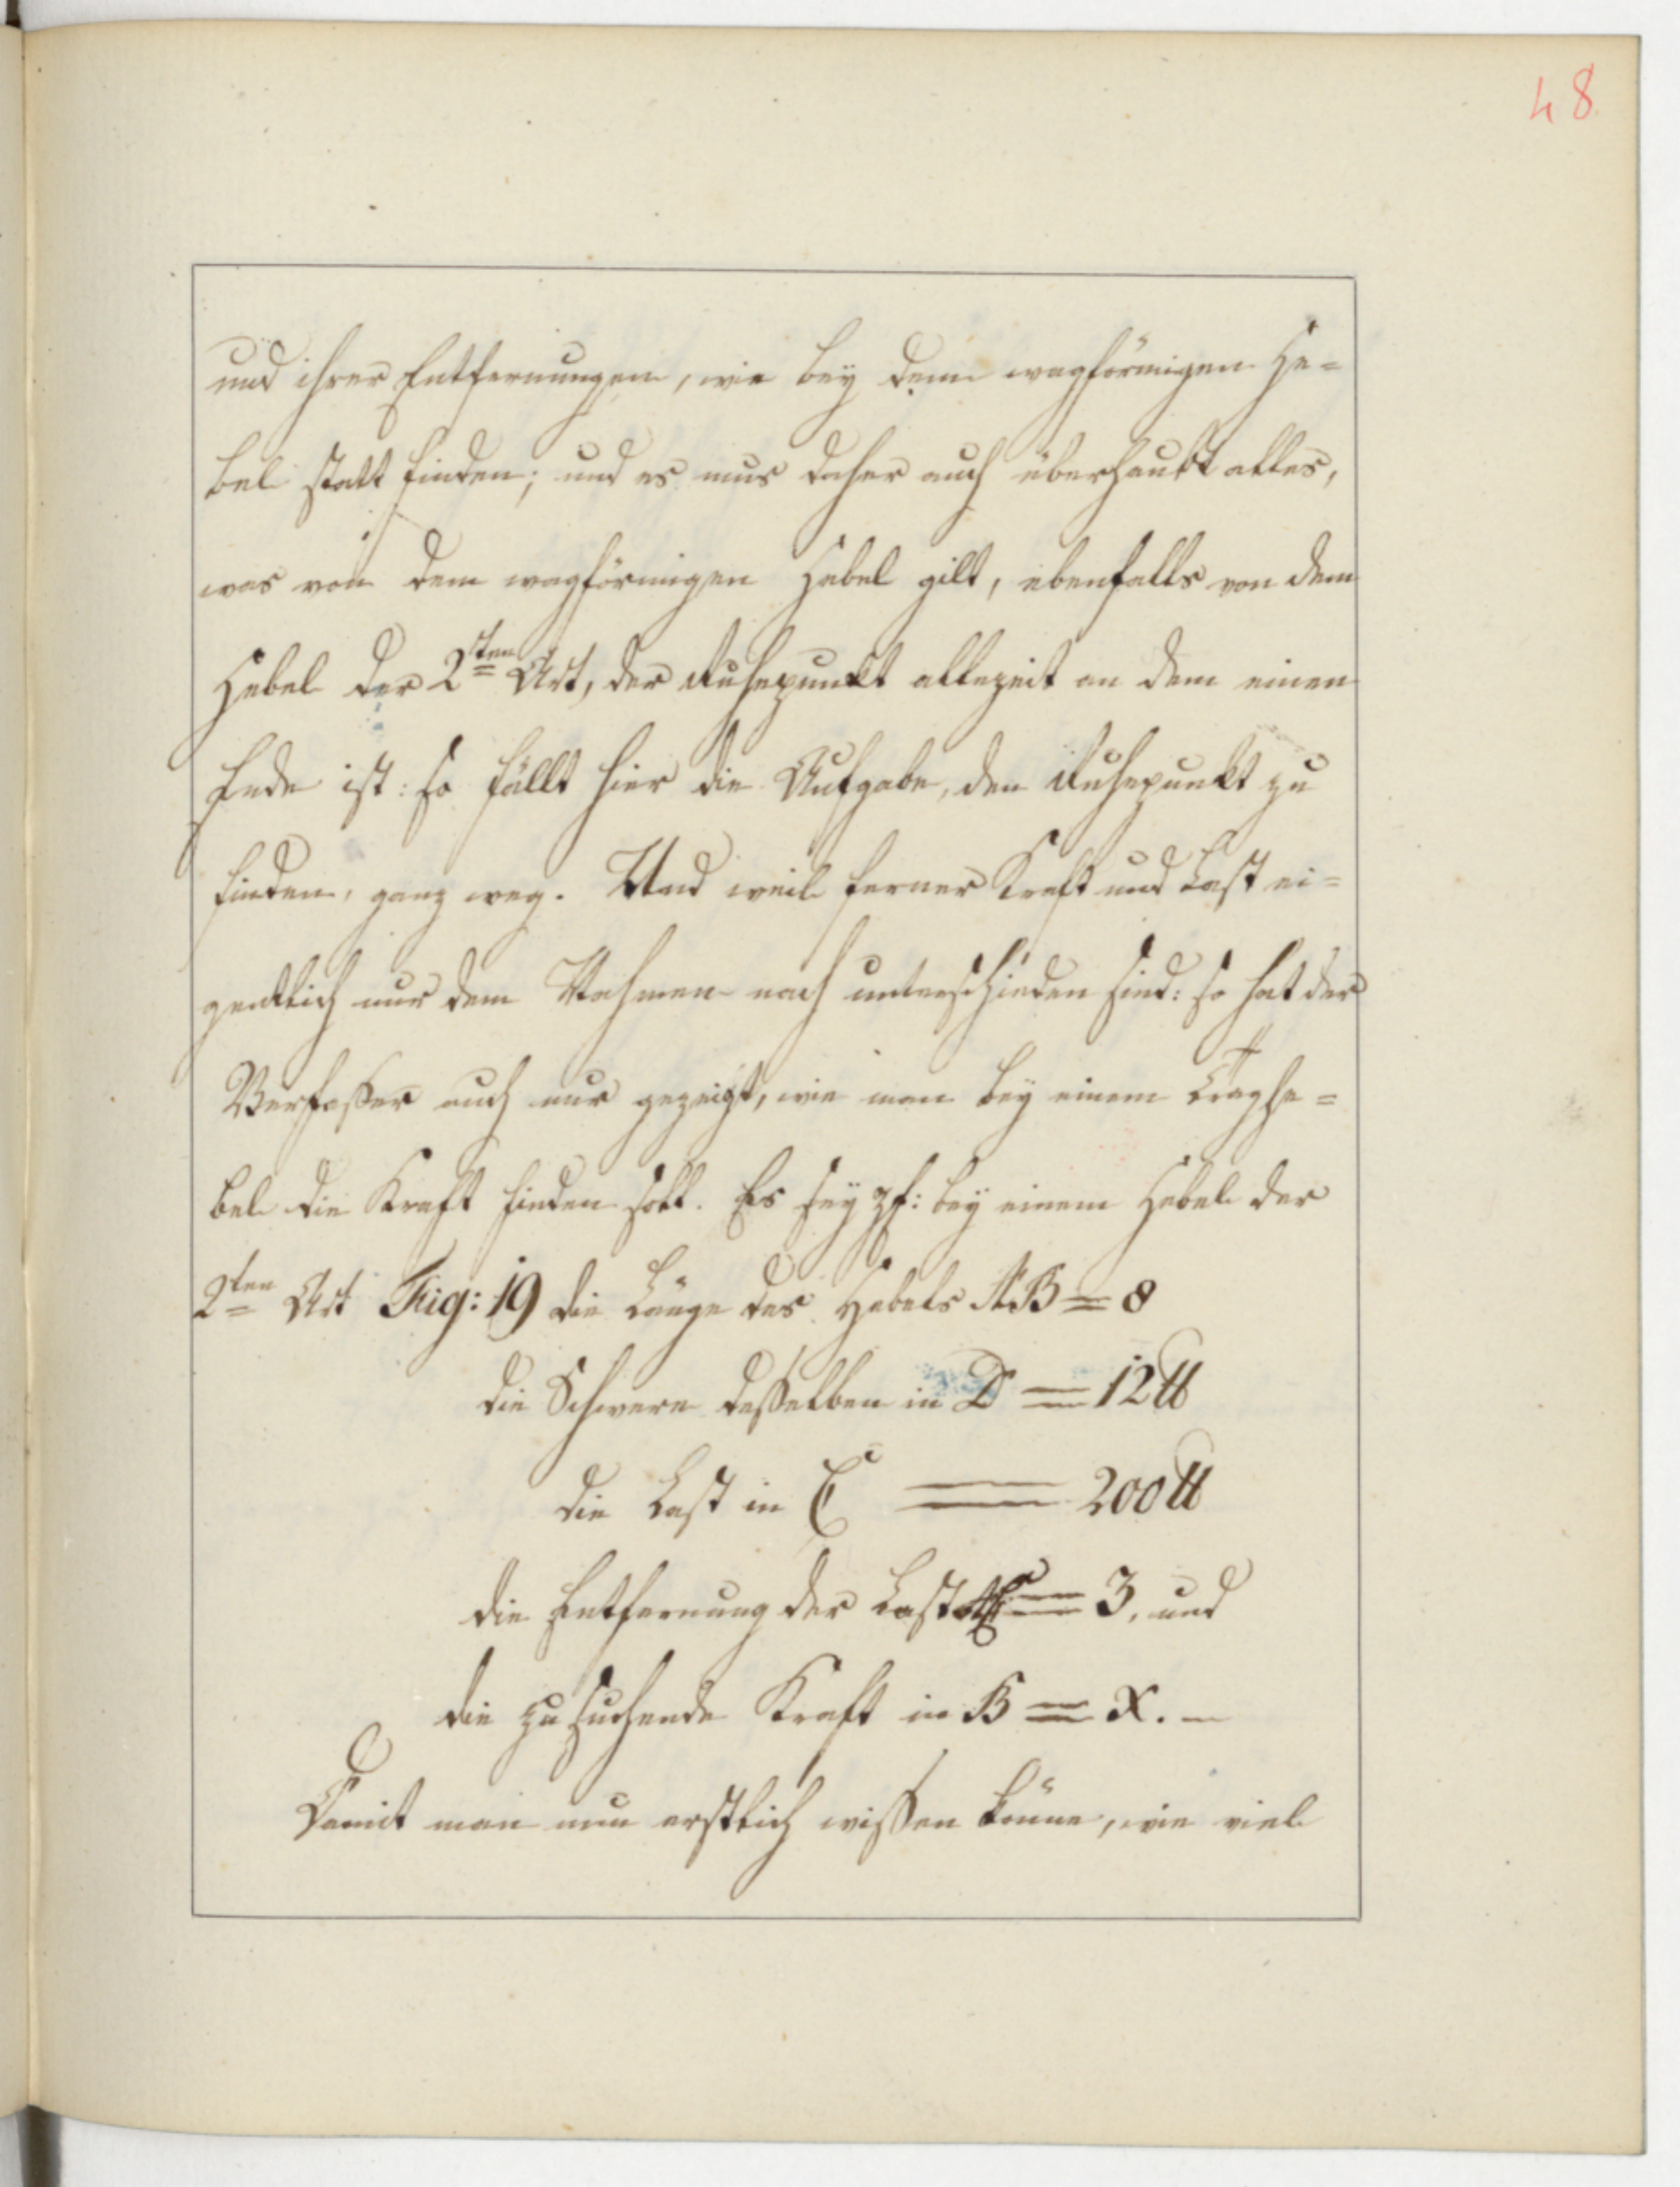 48
und ihrer Entfernungen, wie bey dem wagförmigen He-
bel statt finden; und es mus daher auch überhaubt alles,
was von dem wagförmigen Hebel gilt, ebenfalls von dem
Hebel der 2ten Art, der Ruhepunkt allezeit an dem einen
Ende ist: so fällt hier die Aufgabe, den Ruhepunkt zu
finden, ganz weg. Und weil ferner Kraft und Last ei-
gentlich nur dem Nahmen nach unterschieden sind: so hat der
Verfaßer auch nur gezeigt, wie man bey einem Traghe-
bel die Kraft finden soll. Es sey z.: bey einem Hebel der
2ten Art Fig: 19 die Länge des Hebels AB = 8
die Schwere deßelben in D = 12 ℔
die Last in C = 200 ℔
die Entfernung der Last AC = 3, und
die zu suchende Kraft in B = x. —
Damit man nun erstlich wißen könne, wie viel